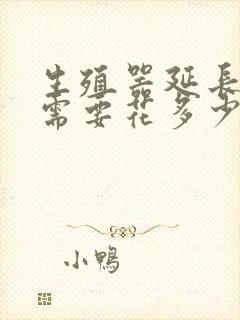 生殖器延长
需要花多少
小鸭